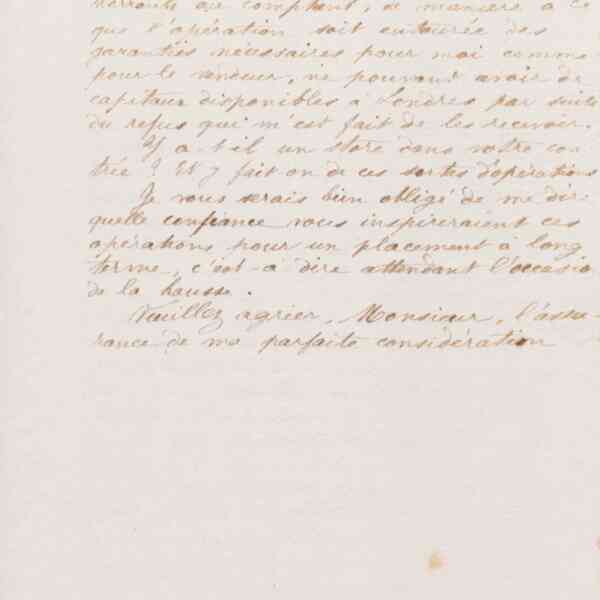 warrants au comptant, de manière à ce
que l'opération soit entourée des
garanties nécessaires pour moi comme
pour le vendeur, ne pouvant avoir de
capitaux disponibles à Londres par suite
du refus qui m'est fait de les recevoir.
Y a-t-il un store dans votre con-
trée ? Et y fait on de ces sortes d'opérations
Je vous serais bien obligé de me dire
quelle confiance vous inspireraient ces
opérations pour un placement à long
terme, c'est-à dire attendant l'occasio
de la hausse.
Veuillez agréer, Monsieur, l'assu-
rance de ma parfaite considération